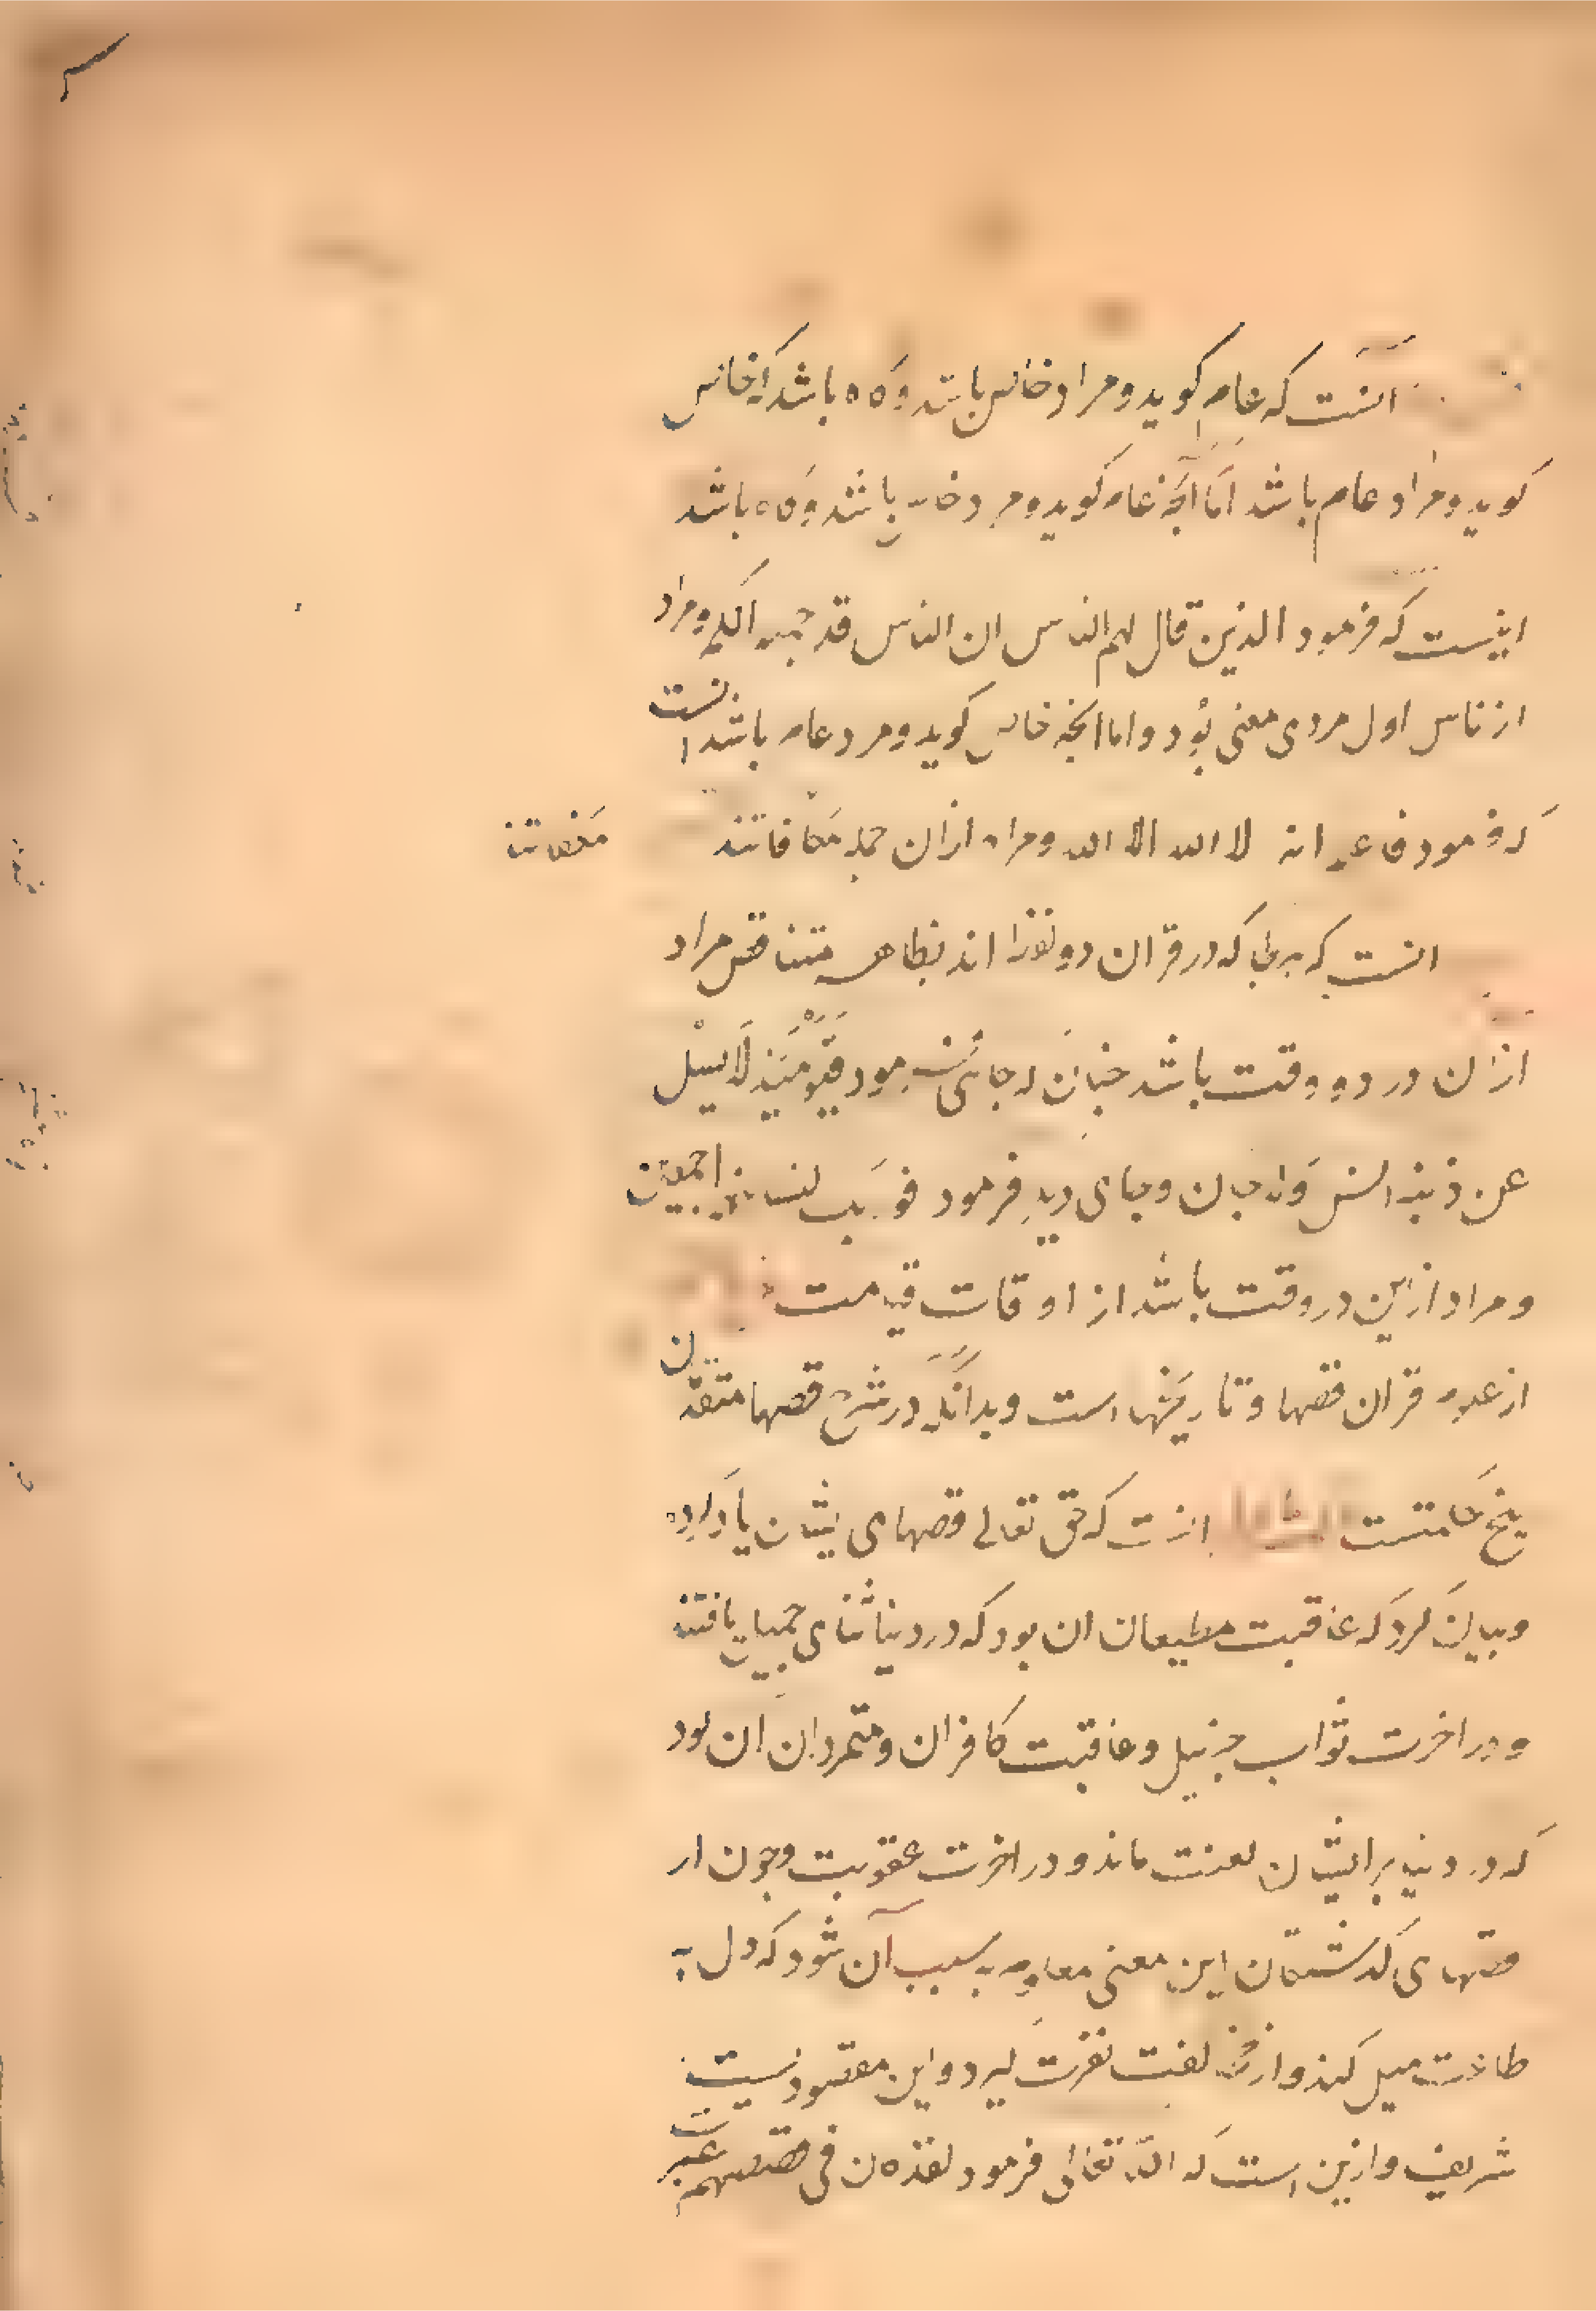 انست که عام کوید و مراد خاص باشد و کاه باشد که خاص
کوید و مراد عام باشد اما آنچه عام کوید و مراد خاص باشد و کاه باشد
اینست که فرمود الذین قال لهم الناس ان الناس قد جمعوا لکم و مراد
از ناس اول مردی معنی بود و اما آنچه خاص کوید و مراد عام باشد انست
که فرمود فاعلم انه لا اله الا الله و مراد ازان جمله مکافاتند
مکلفانند
انست که هرجا که در قران دو لفظ اند بظاهر متناقض مراد
ازان در دو وقت باشد جنانکه جائی فرمود فیومئذ لا یسئل
عن ذنبه انس ولا جان و جای دیگر فرمود فوربک لنسئلنهم اجمعین
و مراد ازین در وقت باشد از اوقات قیامت
از علوم قران قصها و تاریخها است و بدانکه در شرح قصها متقدمان
پنج حکمتست انست که حق تعالی قصهای یشان یاد کرده
و بیان کرد که عاقبت مطیعان ان بود که در دنیا ثنای جمیل یافتند
و در اخرت ثواب جزیل و عاقبت کافران و متمردان ان بود
که در دنیا بر ایشان لعنت ماند و در اخرت عقوبت و چون از
قصهای کذشتکان این معنی معلوم به سبب آن شود که دل به
طاعت میل کند و از لعنت نفرت کیرد و این مقصودیست
شریف و ازین است که الله تعالی فرمود لقد کان فی قصصهم عبرت